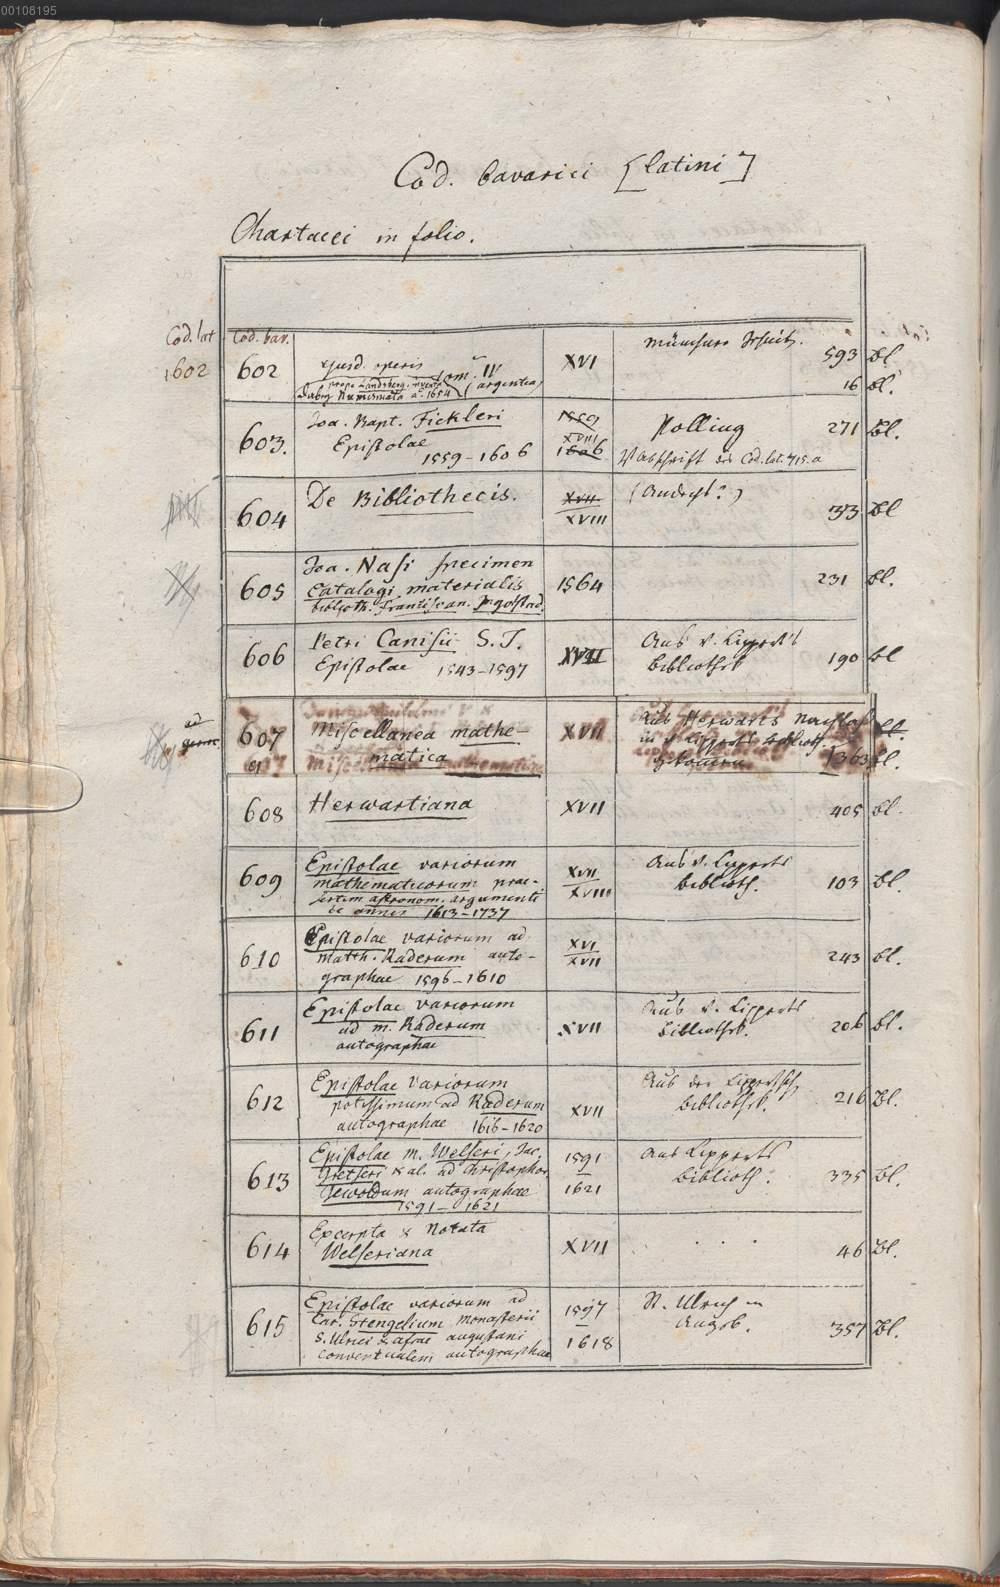 00108195
Cod. bavarici [latini]
Chartacei in folio.
Cod. lat Cod. bar.
1602 602 ejusd. operis tom. IV XVI Münchner Jesuit. 593 Bl.
prope Landsberg. inventa (argentea) 16 Bl.
Numismata aº. 1654
603. Joa. Bapt. Fickleri 1559 Polling 271 Bl.
Epistolae XVIII
1559-1606 1606 Abschrift Cod. lat. 715.a
604 De Bibliothecis. XVII (Andechs?) 33 Bl
XVIII
605 Joa. Nasi specimen 1564 231 Bl.
catalogi materialis
biblioth. Franciscan. Ingolstad.
606 Petri Canisii S. J. XVII Aus v. Lippert's 190 Bl
Epistolae 1543-1597 Bibliothek
ad
germ. 607 Miscellanea mathe- XVII Aus Herwarts Nachlaß
matica in v. Lipperts Biblioth. 363 Bl.
gekommen
608 Herwartiana XVII 405 Bl.
609 Epistolae variorum XVII Aus v. Lipperts 103 Bl.
mathematicorum prae- XVIII Biblioth.
sertim astronom. argumenti
de annis 1613-1737
610 Epistolae variorum ad XVI 243 Bl.
Matth. Raderum auto- XVII
graphae 1596-1610
611 Epistolae variorum XVII Aus v. Lipperts 206 Bl.
ad m. Raderum Bibliothek.
autographae
612 Epistolae Variorum XVII Aus der Lippertsch. 216 Bl.
potissimum ad Raderum Bibliothek.
autographae 1616-1620
613 Epistolae m. Welseri, Jac. 1591 Aus Lipperts 335 Bl.
Gretseri & al. ad Christophor. – Biblioth.
Gewoldum autographae 1621
1591-1621
614 Excerpta & Notata XVII . . . 46 Bl.
Welseriana
615 Epistolae variorum ad 1597 St. Ulrich in 357 Bl.
Car. Stengelium Monasterii – Augsb.
S. Ulrici & Afrae augustani 1618
conventualem autographae